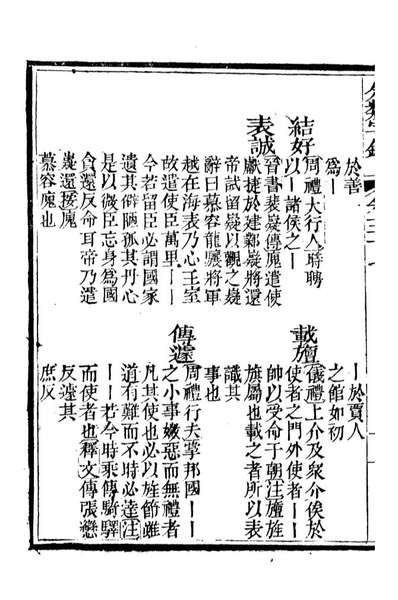 於善
爲｜
結好
周禮大行人｜聘聘
以｜諸侯之｜
表誠
晉書裴嶷傳廆遣使
獻捷於建鄴嶷將還
帝試留嶷以觀之嶷
辭曰慕容龍驤將軍
越在海表乃心王室
故遣使臣萬里｜｜
今若留臣必謂國家
遺其僻陋孤其丹心
是以微臣忘身爲國
貪還反命耳帝乃遣
嶷還接廆
慕容廆也
｜於賈人
之館如初
載旜
儀禮上介及衆介俟於
使者之門外使者｜｜
帥以受命于朝注旜旌
旗屬也載之者所以表
識其
事也
傳遽
周禮行夫掌邦國｜｜
之小事媺惡而無禮者
凡其使也必以旌節雖
道有難而不時必達注
｜｜若今時乘傳騎驛
而使者也釋文傳張戀
反遽其
庶反